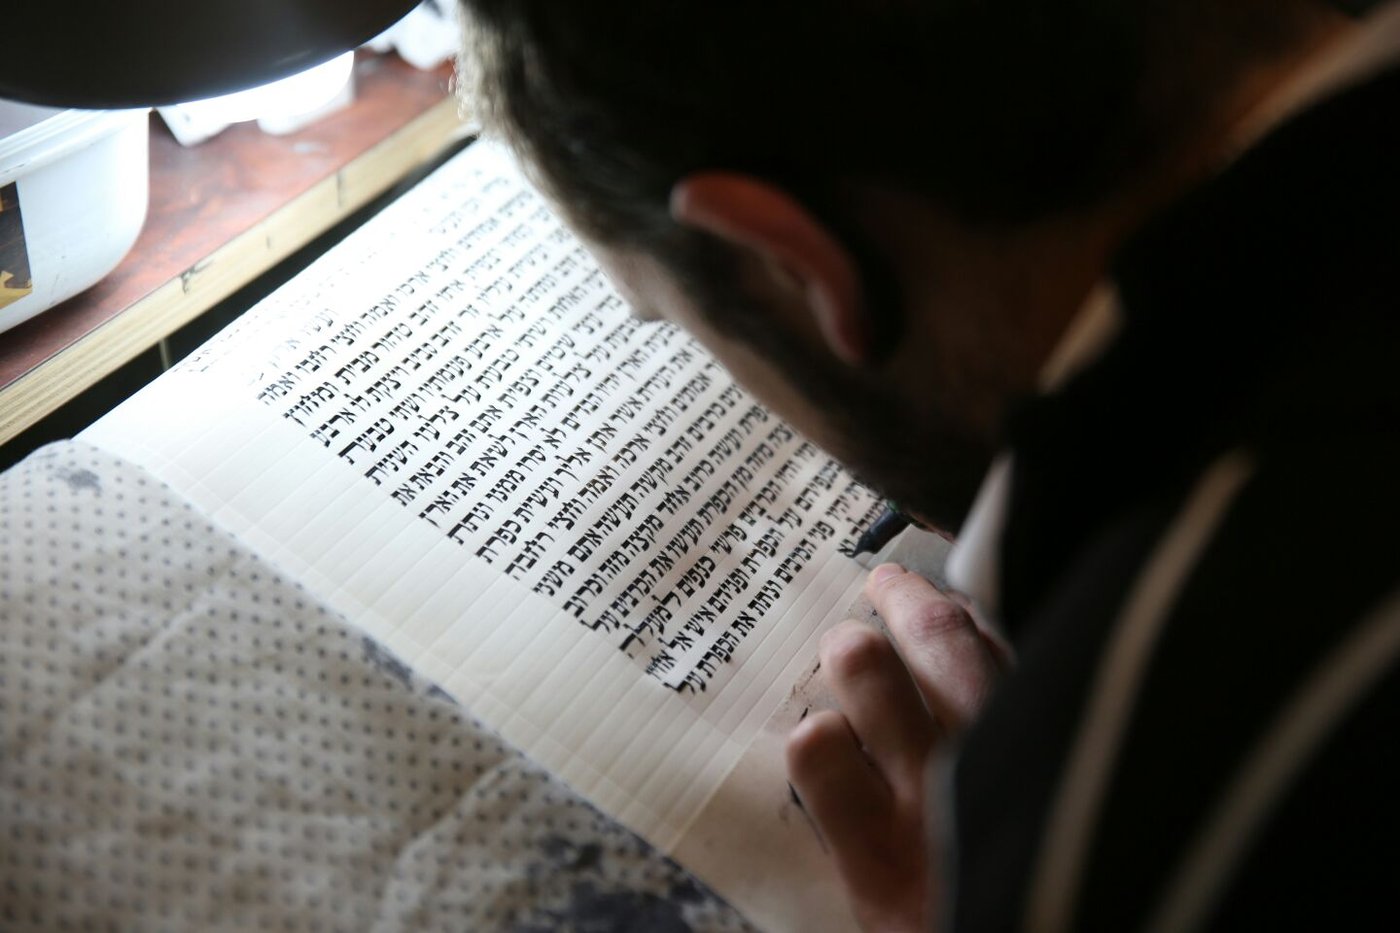 ועשו ארון
אמתים וחצי ארכו ואמה וחצי רחבו ואמה
וצפית אתו זהב טהור מבית ומחוץ
ועשית עליו זר זהב סביב ויצקת לו ארבע
זהב ונתתה על ארבע פעמתיו ושתי טבעת
האחת ושתי טבעת על צלעו השנית
בדי עצי שטים וצפית אתם זהב והבאת את
בטבעת על צלעת הארן לשאת את הארן
בטבעת הארן יהיו הבדים לא יסרו ממנו ונתת
את העדת אשר אתן אליך ועשית כפרת
אמתים וחצי ארכה ואמה וחצי רחבה
שנים כרבים זהב מקשה תעשה אתם משני
הכפרת ועשה כרוב אחד מקצה מזה וכרוב
מקצה מזה מן הכפרת תעשו את הכרבים על
והיו הכרבים פרשי כנפים למעלה
בכנפיהם על הכפרת ופניהם איש אל אחיו
יהיו פני הכרבים ונתת את הכפרת על